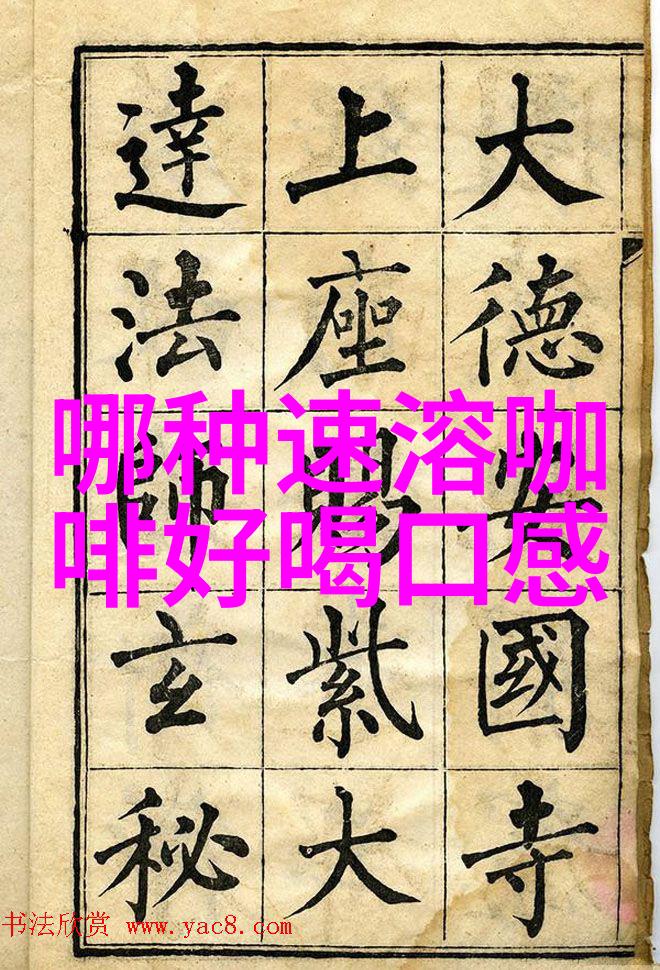 大德安國寺
上座賜紫大
達法師玄秘
哪种速溶咖
啡好喝口感
书法欣赏 www.yac8.com